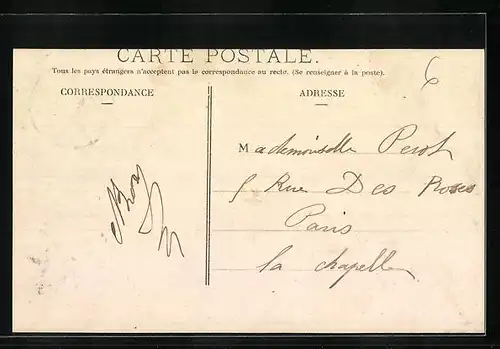 CARTE POSTALE.
Tous les pays étrangers n'acceptent pas la correspondance au recto. (Se renseigner à la poste).
CORRESPONDANCE
ADRESSE
6
Mademoiselle Perot
5 Rue Des Roses
Paris
la chapelle